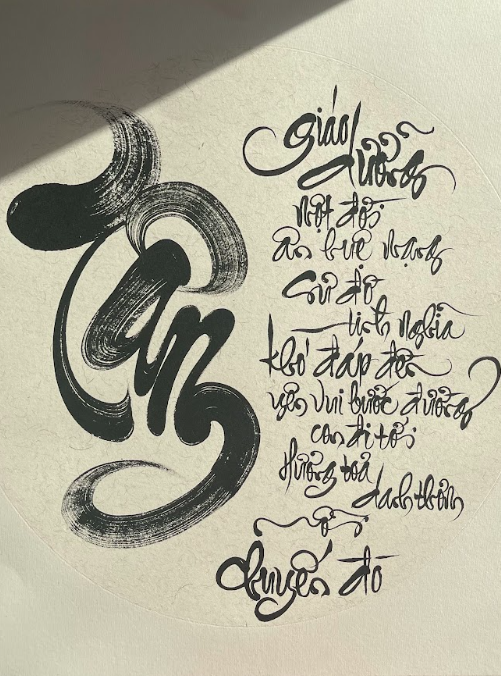 giáo
dưỡng
một đời
ân nặng
Sư đồ
tình nghĩa
khó đáp đền
yên vui bước đường
con đi tới
Hương toả
danh thơm
ơn
chuyến đò